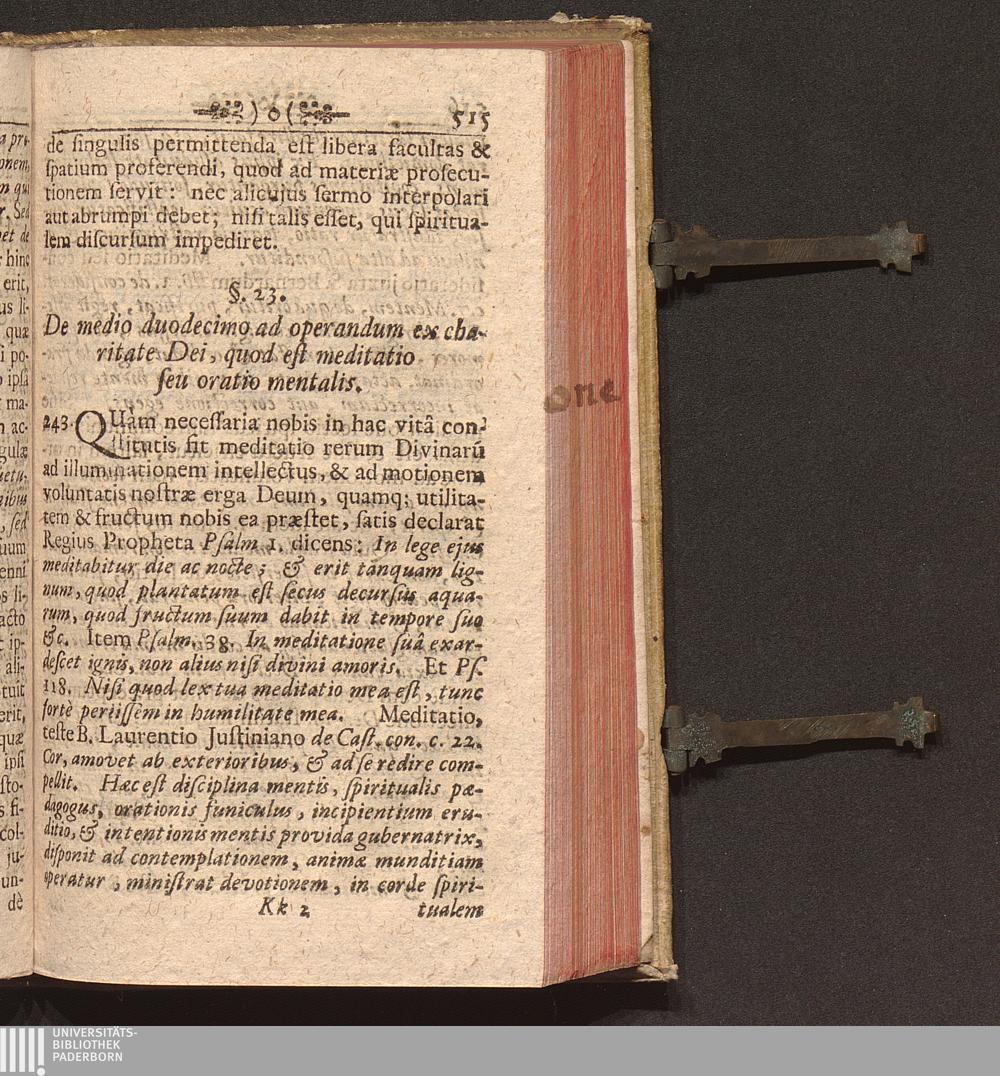 ) o ( 515
de singulis permittenda est libera facultas &
spatium proferendi, quod ad materiæ prosecu-
tionem servit: nec alicujus sermo interpolari
aut abrumpi debet; nisi talis esset, qui spiritua-
lem discursum impediret.
§. 23.
De medio duodecimo ad operandum ex cha-
ritate Dei, quod est meditatio
seu oratio mentalis.
243. QUàm necessaria nobis in hac vitâ con-
stitutis sit meditatio rerum Divinarũ
ad illuminationem intellectus, & ad motionem
voluntatis nostræ erga Deum, quamq; utilita-
tem & fructum nobis ea præstet, satis declarat
Regius Propheta Psalm. 1. dicens: In lege ejus
meditabitur die ac nocte; & erit tanquam lig-
num, quod plantatum est secus decursus aqua-
rum, quod fructum suum dabit in tempore suo
&c. Item Psalm. 38. In meditatione suâ exar-
descet ignis, non alius nisi divini amoris. Et Ps.
118. Nisi quod lex tua meditatio mea est, tunc
fortè periissem in humilitate mea. Meditatio,
teste B. Laurentio Justiniano de Cast. con. c. 22.
Cor, amovet ab exterioribus, & ad se redire com-
pellit. Hæc est disciplina mentis, spiritualis pæ-
dagogus, orationis funiculus, incipientium eru-
ditio, & intentionis mentis provida gubernatrix,
disponit ad contemplationem, animæ munditiam
operatur, ministrat devotionem, in corde spiri-
Kk 2 tualem
one
UNIVERSITÄTS-
BIBLIOTHEK
PADERBORN